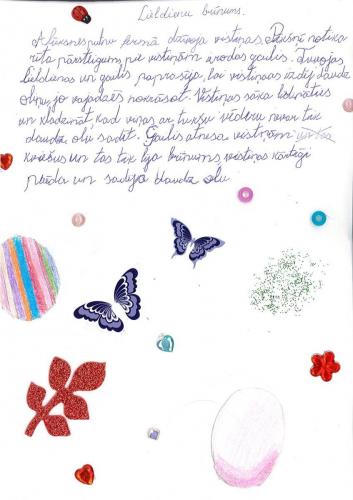 Lieldienu brīnums.
fermā dzīvoja vistiņas. Pēkšņi notika
rīta pārsteigums, pie vistiņām ierodas gailis. Tuvojas
Lieldienas un gailis paprasīja, lai vistiņas izdēj daudz
olu, jo vajadzēs nokrāsot. Vistiņas sāka
un kladzināt, kad viņas ar tukšu vēderu nevar tik
daudz olu sadēt. Gailis atnesa vistiņām
kviešus un tas tik bija brīnums, vistiņas kārtīgi
ēda un sadēja daudz olu.